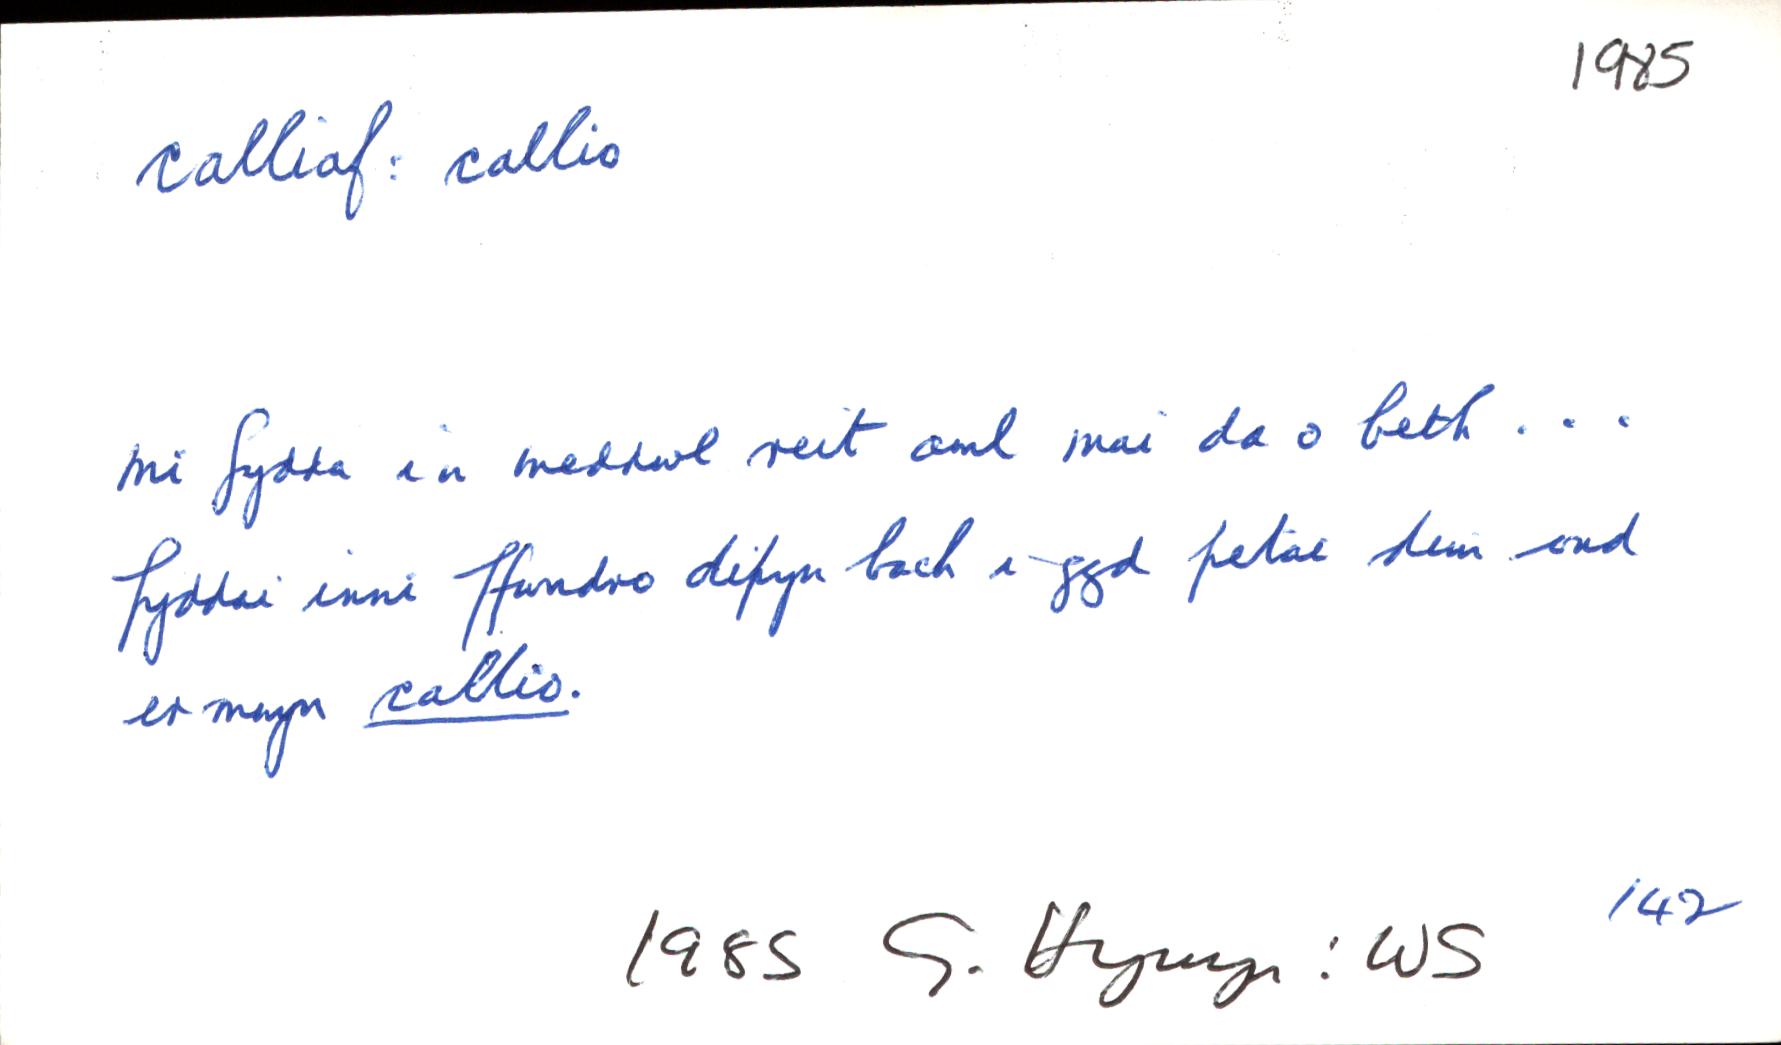 1985
calliaf: callio
Mi fydda i'n meddwl reit aml mai da o beth . . .
fyddai inni ffwndro dipyn bach i gyd petai dim ond
er mwyn callio.
142
1985 G. Hywyn: WS